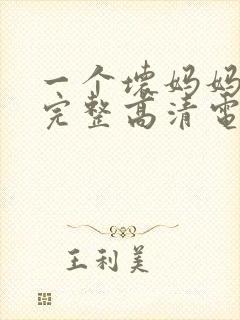 一个壞妈妈
完整高清電
王利美